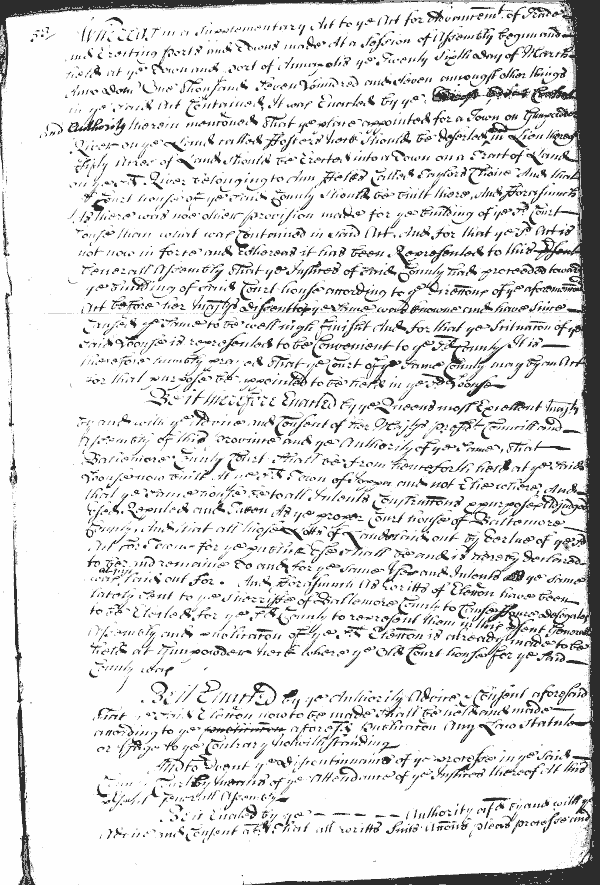 Whereas in a Supplementary Act to ye Act for Advancemt. of Trade
and Erecting Ports and Towns made At a Session of Assembly begun and
held at ye Town and Port of Annapolis ye Twenty Sixth day of March
Anno Dom. One Thousand Seven Hundred and Eleven amongst other things
in ye said Act Contained, It was Enacted by ye
and Authority therein mentioned That ye place appointed for a Town on Gunpowder
River on ye Land called Fosters Neck Should be deserted, in Lieu thereof
fifty Acres of Land should be Erected into a Town on a Tract of Land
on ye sd. River belonging to Ann Felks Called Taylors Choice And that
ye Court house of ye said County Should be built there, And forasmuch
As there was noe other provision made for ye building of ye sd. Court
house than what was Contained in said Act, And for that ye sd. Act is
not now in force and whereas it has been Represented to this psent
Generall Assembly That ye Justices of said County had proceeded toward
ye building of said Court house according to ye directions of ye aforemention
Act before her Majtys dissent to ye same was knowne and have Since
Caused ye same to be well nigh finisht And for that ye Situation of ye
said House is represented to be Convenient to ye sd. County It is
therefore humbly prayed That ye Court of ye same County may by an Act
for that purpose be appointed to be held in ye sd. House
Be it therefore Enacted by ye Queens most Excellent Majty
by and with ye Advice and Consent of her Majtys Councill and
Assembly of this Province and ye Authority of ye same, That
Baltemore County Court shall be from henceforth held at ye said
House now built At ye sd. Town of Joppa and not Elsewhere, And
that ye same house be to all Intents Constructions & purposes Adjudged
Used Reputed and Taken As ye proper Court house of Baltemore
County, And that all those Lotts of Land laid out by vertue of ye sd
Act for a Towne for ye publick Use shall be and is hereby declared
to be and remaine To and for ye same Uses and Intents As ye same
was laid out for. And forasmuch As Writts of Election have been
lately sent to ye Sherriffe of Baltemore County to Cause Delegates
to be Elected for ye sd. County to represent them in this psent Generall
Assembly and publication of ye sd. Election is already made to be
held at Gunpowder Neck where ye Old Court house for ye said
County was
Be it Enacted by ye Authority Advice & Consent aforesaid
That ye said Election now to be made shall be held and made
according to ye aforesd. Publication Any Law Statute
or Usage to ye Contrary Notwithstanding
And to prevent ye discontinuance of ye processe in ye said
County Court by means of ye attendance of ye Justices thereof At this
psent Generall Assembly
Be it Enacted by ye Authority by and with ye
Advice and Consent aforesd. That all Writts Suits Actions pleas processe and